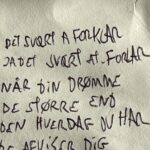 DET SVÆRT A FORKLAR
JA DET SVÆRT AT FORLAR
NÅR DIN DRØMME
DE STØRRE END
DEN HVERDAG DU HAR
DE AFVISER DIG